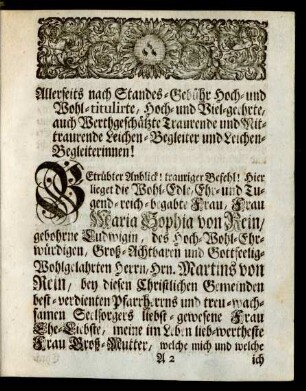 Allerseits nach Standes-Gebühr Hoch- und
Wohl-titulirte, Hoch- und Viel-geehrte,
auch Werthgeschätzte Traurende und Mit-
traurende Leichen-Begleiter und Leichen-
Begleiterinnen!
BEtrübter Anblick! trauriger Befehl! Hier
lieget die Wohl-Edle, Ehr- und Tu-
gend-reich-begabte Frau, Frau
Maria Sophia von Rein,
gebohrne Ludwigin, des Hoch-Wohl-Ehr-
würdigen, Groß-Achtbaren und Gottseelig-
Wohlgelahrten Herrn, Hrn. Martins von
Rein, bey diesen Christlichen Gemeinden
best-verdienten Pfarrherrns und treu-wach-
samen Seelsorgers liebst-gewesene Frau
Ehe-Liebste, meine im Leben lieb-wertheste
Frau Groß-Mutter, welche mich und welche
A 2 ich